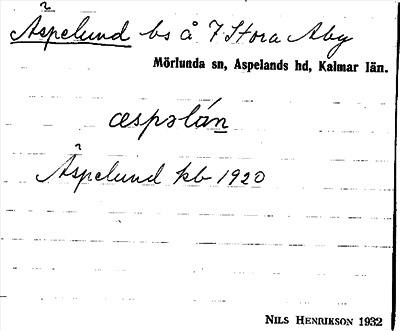 Äspelund bs å 7 Stora Aby
Mörlunda sn, Aspelands hd, Kalmar län.
æspəlán
Äspelund kb 1920
NILS HENRIKSON 1932